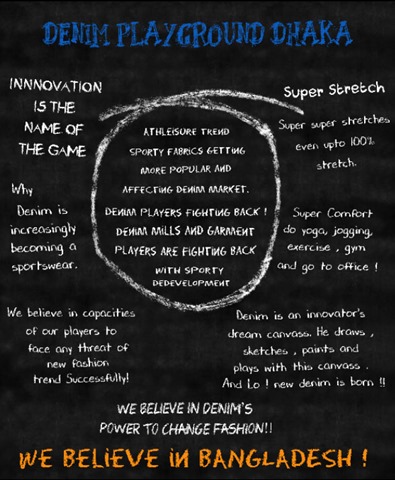 DENIM PLAYGROUND DHAKA
INNNOVATION
IS THE
NAME OF
THE GAME
Why
Denim is
increasingly
becoming a
sportswear.
We believe in capacities
of our players to
face any threat of
new fashion
trend Successfully!
ATHLEISURE TREND
SPORTY FABRICS GETTING
MORE POPULAR AND
AFFECTING DENIM MARKET.
DENIM PLAYERS FIGHTING BACK !
DENIM MILLS AND GARMENT
PLAYERS ARE FIGHTING BACK
WITH SPORTY
DEDEVELOPMENT
Super Stretch
Super super stretches
even upto 100%
stretch.
Super Comfort
do yoga, jogging,
exercise , gym
and go to office !
Denim is an innovator's
dream canvass. He draws ,
sketches , paints and
plays with this canvass .
And Lo ! new denim is born !!
WE BELIEVE IN DENIM'S
POWER TO CHANGE FASHION!!
WE BELIEVE iN BANGLADESH !